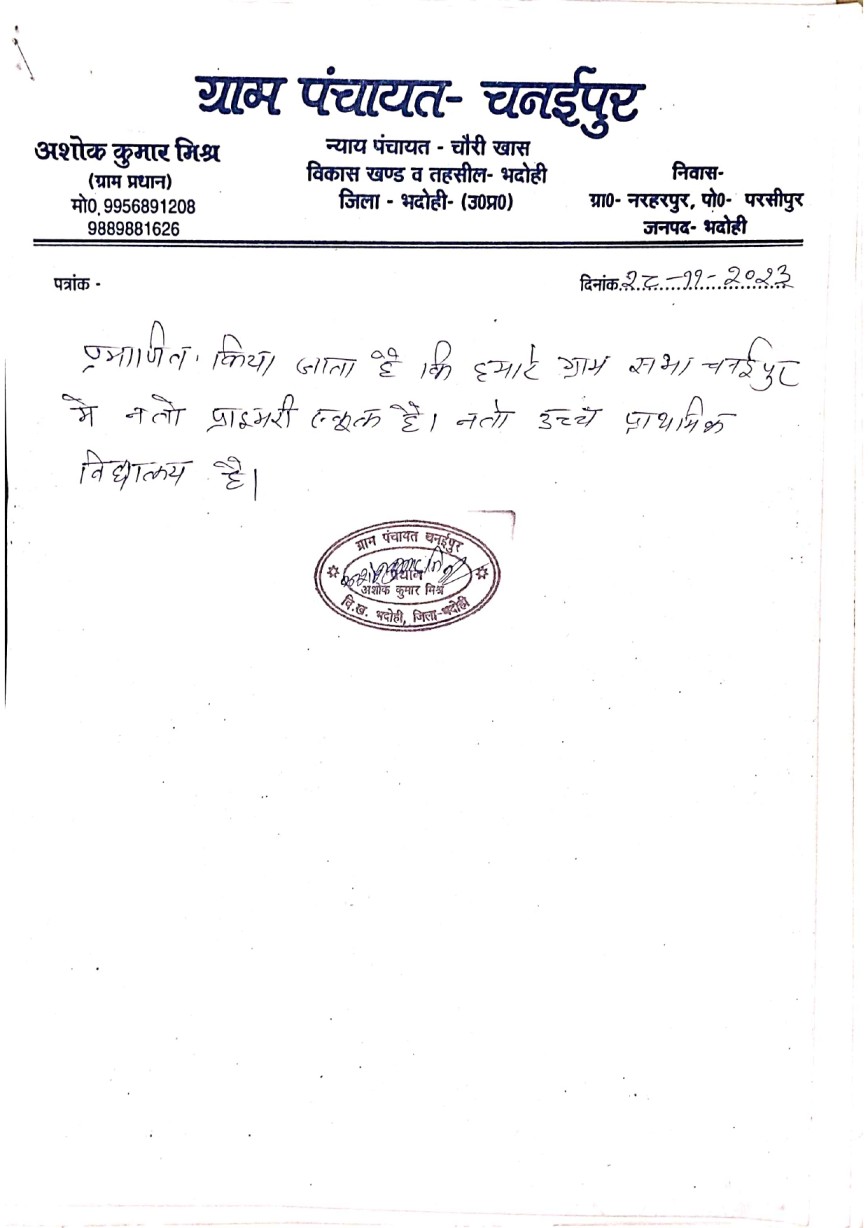 ग्राम पंचायत- चनईपुर
अशोक कुमार मिश्र
(ग्राम प्रधान)
मो0. 9956891208
9889881626
न्याय पंचायत - चौरी खास
विकास खण्ड व तहसील- भदोही
जिला - भदोही- (उ0प्र0)
निवास-
ग्रा0- नरहरपुर, पो0- परसीपुर
जनपद- भदोही
पत्रांक -
दिनांक. २८-११-२०२३
प्रमाणित किया जाता है कि हमारे ग्राम सभा चनईपुर
मे नतो प्राइमरी स्कूल है। नतो उच्च प्राथमिक
विद्यालय है।
ग्राम पंचायत चनईपुर
प्रधान
अशोक कुमार मिश्र
वि.ख. भदोही, जिला-भदोही